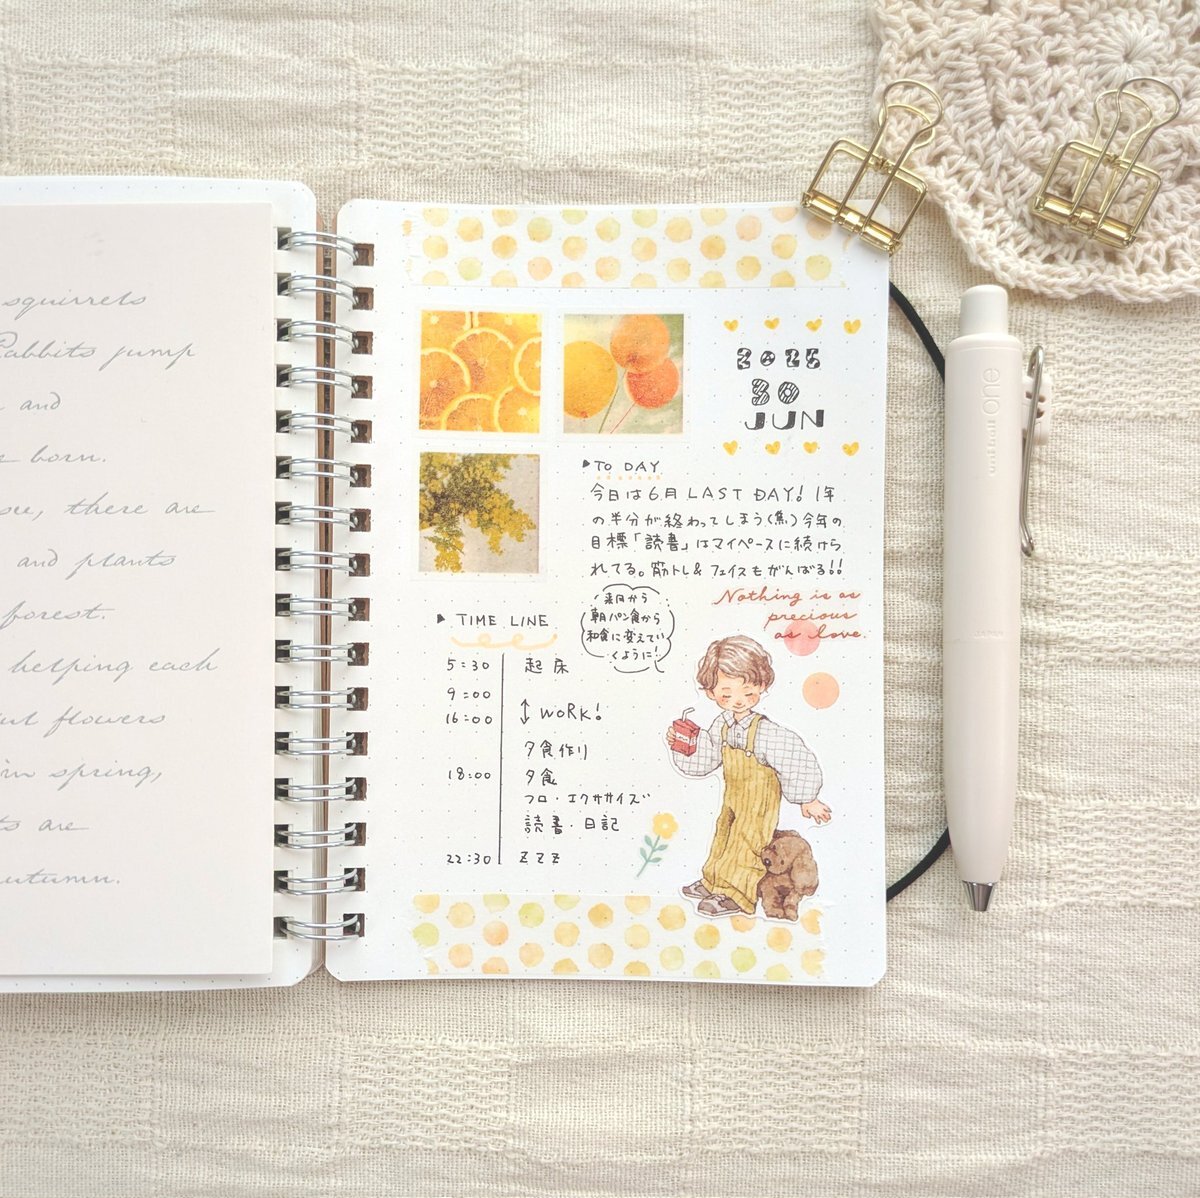 squirrels
Rabbits jump
and
born.
there are
and plants
forest.
helping each
flowers
in spring,
are
autumn.
2025
30
JUN
▶TO DAY
今日は6月 LAST DAY! 1年
の半分が終わってしまう(焦)今年の
目標「読書」はマイペースに続けら
れてる。筋トレ&フェイスもがんばる!!
来月から
朝パン食から
和食に変えてい
くように!
Nothing is as
precious
as love.
▶ TIME LINE
5:30 起床
9:00
16:00 ↕ WORK!
夕食作り
18:00 夕食
フロ・エクササイズ
読書・日記
22:30 ZZZ
uni-ball one
JAPAN